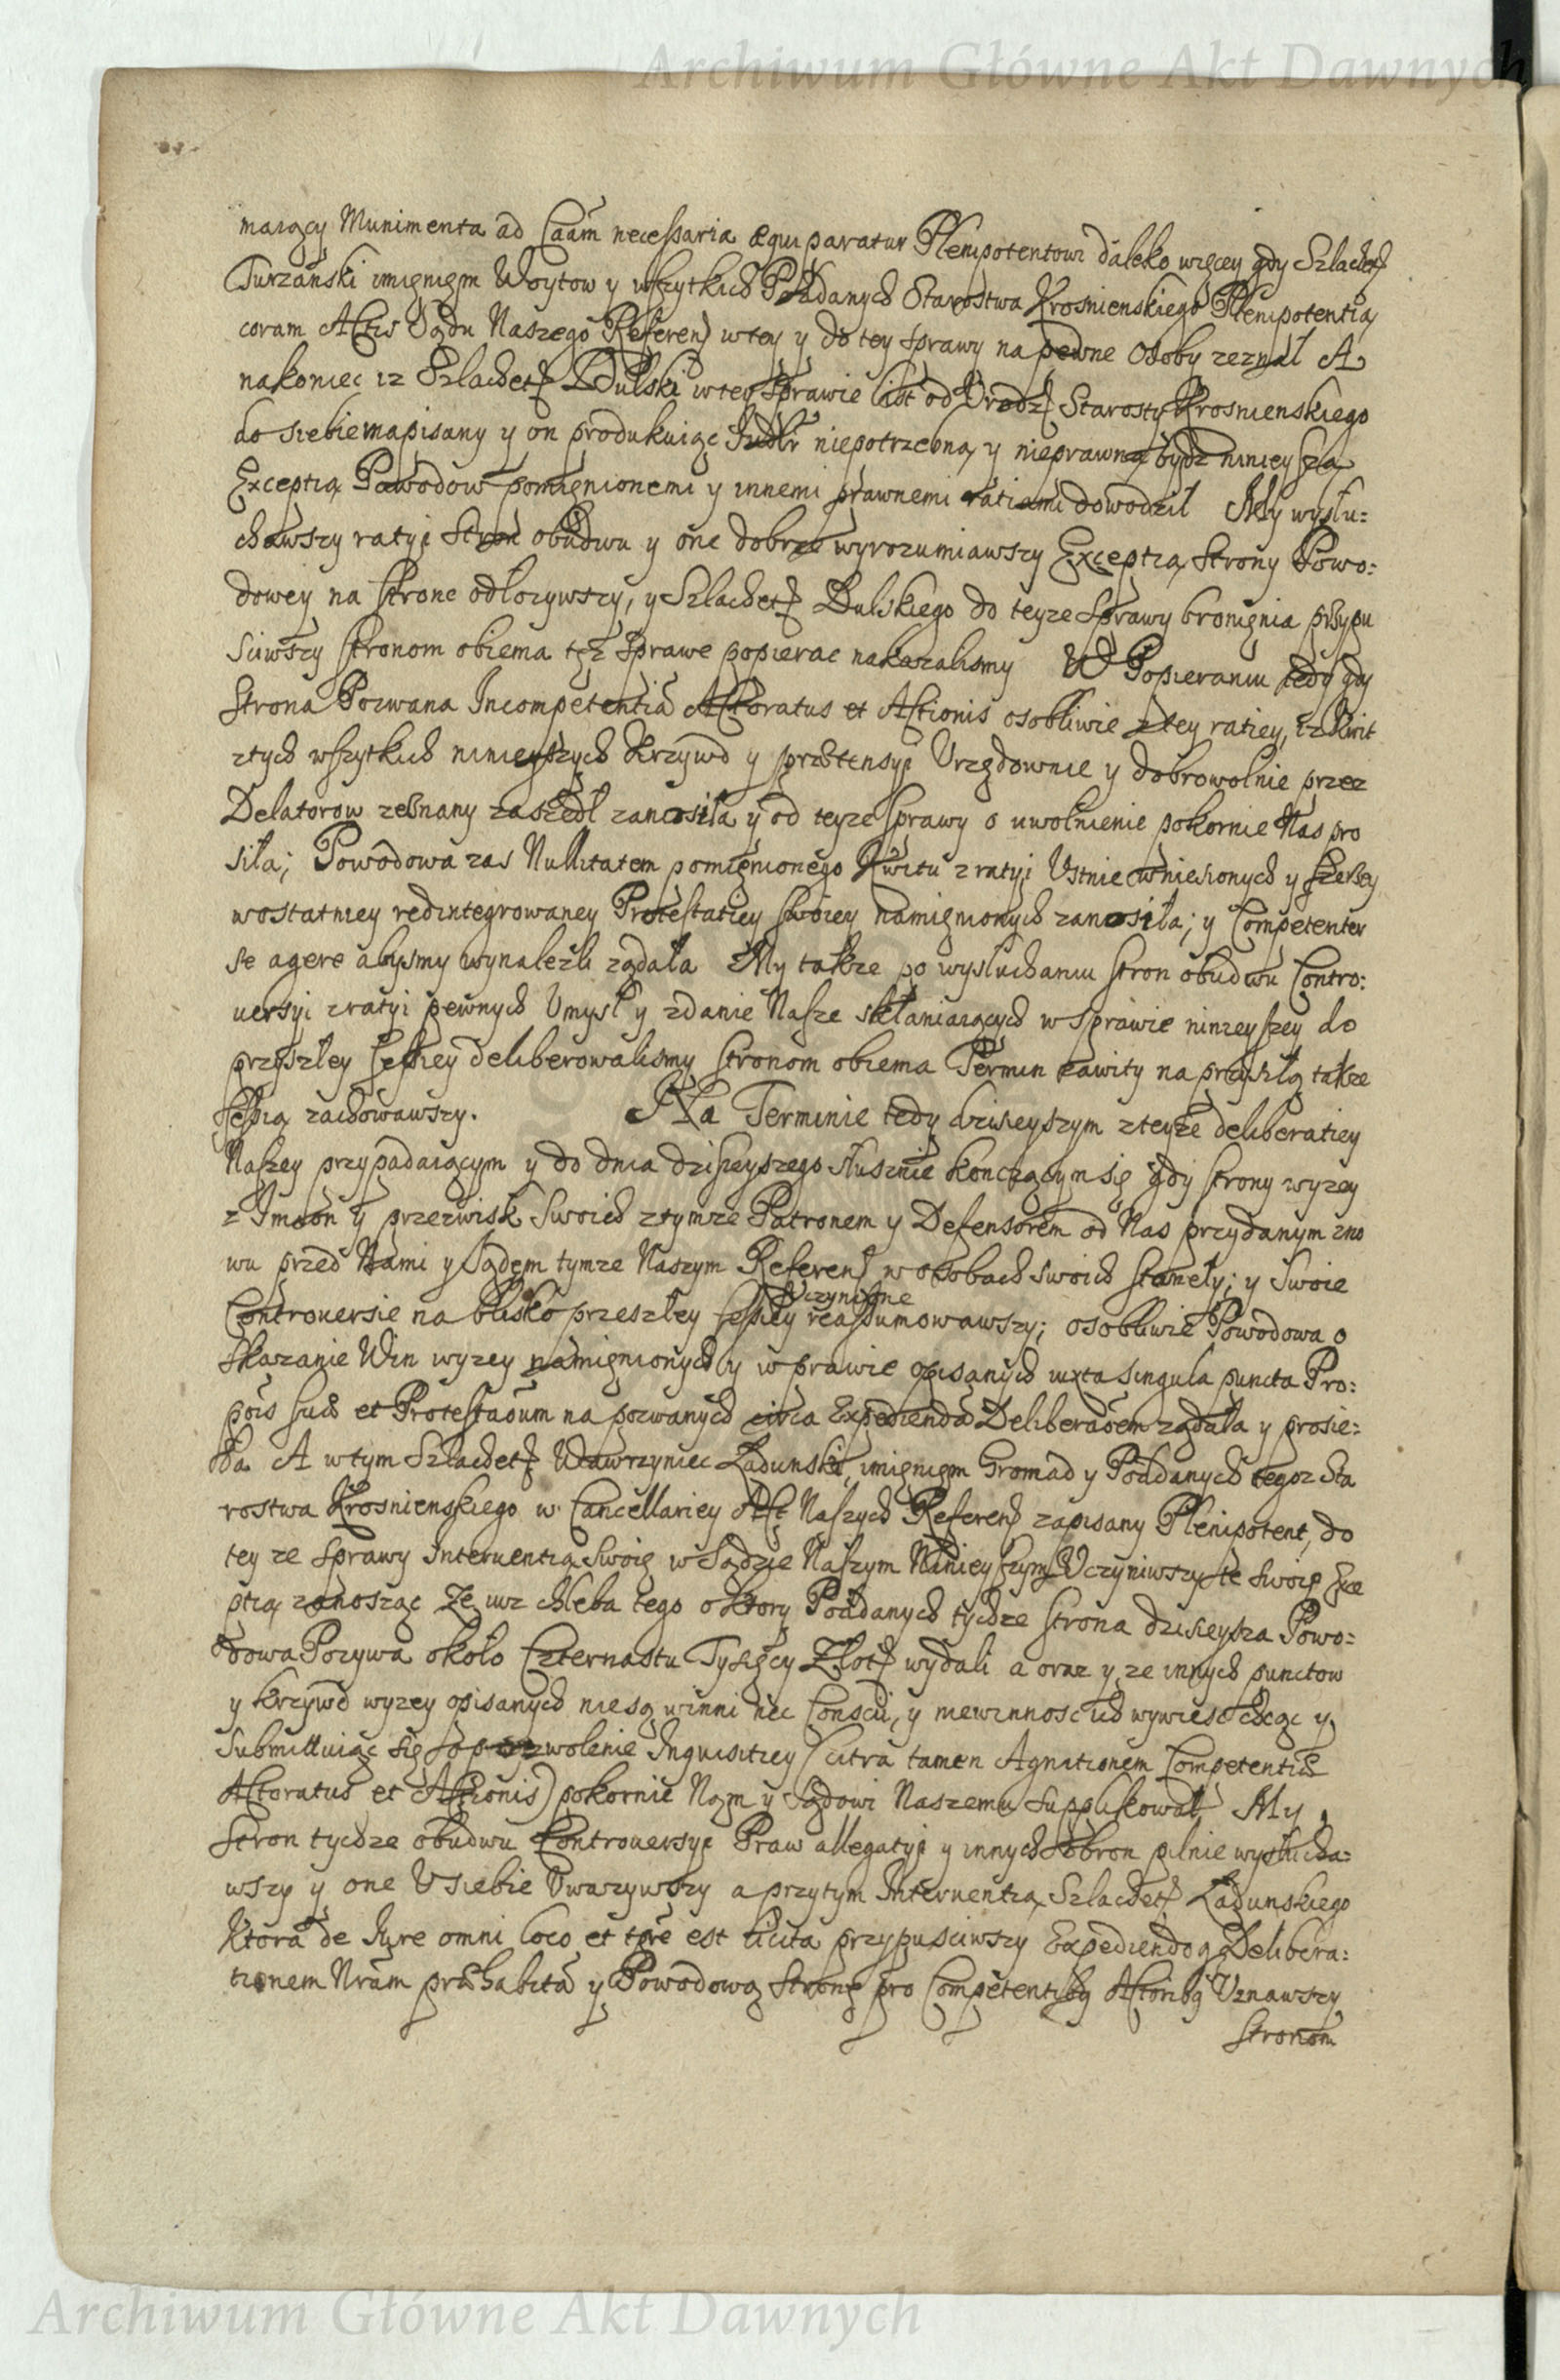 Archiwum Główne Akt Dawnych
maiący Munimenta ad Caam necessaria æquiparatur Plenipotentowi daleko więcey gdy Szlachet
Turzański imieniem Woytow y wszytkich Poddanych Starostwa Krosnienskiego Plenipotentią
coram Actis Sądu Naszego Referen wtey y do tey sprawy na pewne Osoby zeznał A
nakoniec iz Szlachet Dulski wtey Sprawie list od Urodz Starosty Krosnienskiego
do siebie napisany y on produkuiąc niepotrzebną y nieprawną bydz ninieyszą
Exceptią Powodow pomienionemi y innemi prawnemi ratiami dowodził My wysłu=
chawszy ratyi Stron obudwu y one dobrze wyrozumiawszy Exceptią Strony Powo=
dowey na strone odłozywszy, y Szlachet Dulskiego do teyze Sprawy bronienia przypu
sciwszy stronom obiema tęz Sprawe popierac nakazalismy W Popieraniu tedy gdy
Strona Pozwana Incompetentia Actoratus et Actionis osobliwie z tey ratiey, iz kwit
ztych wszytkich ninieyszych Krzywd y prætensyi Urzędownie y dobrowolnie przez
Delatorow zeznany zaszedł zanosiła y od teyze sprawy o uwolnienie pokornie Nas pro
siła; Powodowa zas Nullitatem pomienionego Kwitu z ratyi Ustnie wniesionych y szerzey
wostatniey redintegrowaney Protestatiey swoiey namienionych zanosiła; y Competenter
se agere abysmy wynalezli ządała My takze po wysłuchaniu stron obudwu Contro:
uersyi z ratyi pewnych Umysł y zdanie Nasze skłaniaiących w sprawie ninieyszey do
przyszłey sessiey deliberowalismy stronom obiema Termin zawity na przyszłą takze
sessią zachowawszy. Na Terminie tedy dzisieyszym z teyze deliberatiey
Naszey przypadaiącym y do dnia dzisieyszego słusznie konczącym się gdy strony wyzey
z Imion y przezwisk Swoich z tymze Patronem y Defensorem od Nas przydanym zno
wu przed Nami y Sądem tymze Naszym Referen w osobach swoich staneły; y swoie
Controuersie na blisko przeszłey sessiey Uczynione reassumowawszy; osobliwie Powodowa o
skazanie Win wyzey namienionych y w prawie opisanych iuxta singula puncta Pro:
pois suæ et Protestaoum na pozwanych circa Expedienda Deliberaoem ządała y prosie:
ła A wtym Szlachet Wawrzyniec Ładunski, imieniem Gromad y Poddanych tegoz Sta
rostwa Krosnienskiego w Cancellariey Act Naszych Referen zapisany Plenipotent, do
tey ze sprawy Interuentią Swoię w Sądzie Naszym Ninieyszym Uczyniwszy te swoię Exce
ptią zanosząc Ze iuz chleba tego o ktory Poddanych tychze strona dzisieysza Powo=
dowa Pozywa około Czternastu Tysięcy Złot wydali a oraz y ze innych punctow
y Krzywd wyzey opisanych niesą winni nec Conscii, y niewinnosc ich wywiesc chcąc y
Submittuiąc się o pozwolenie Inquisitiey (citra tamen Agnitionem Competentiæ
Actoratus et Actionis) pokornie Nam y Sądowi Naszemu supplikował My
Stron tychze obudwu Controuersyi Praw allegatyi y innych obron pilnie wysłucha=
wszy y one U siebie Uwazywszy a przytym Interuentią Szlachet Ładunskiego
Ktora de Iure omni loco et tpre est licita przypusciwszy Expediendoq Delibera:
tionem Nram præhabita y Powodową Stronę pro Competentibq Actoribq Uznawszy
Stronom
Archiwum Główne Akt Dawnych